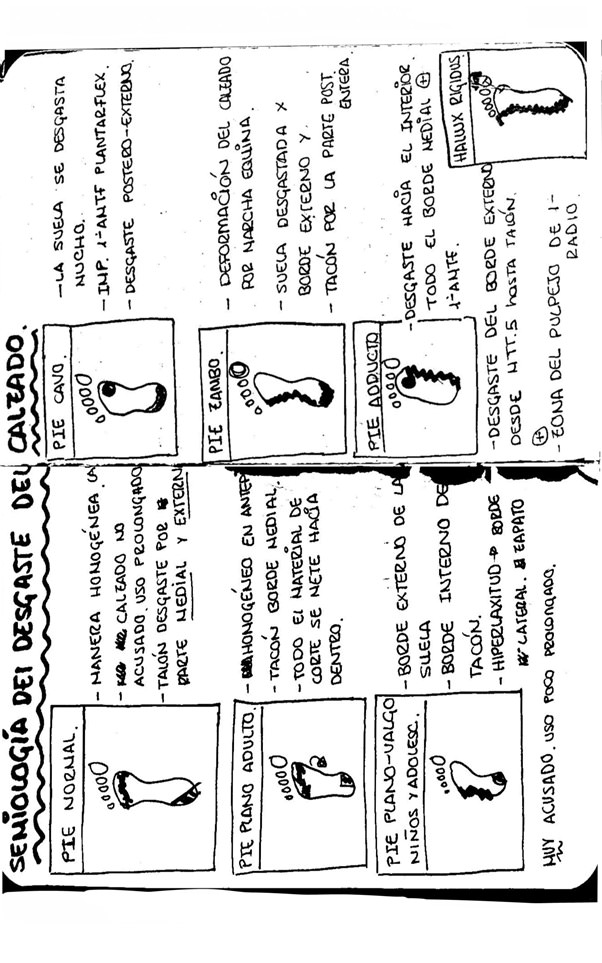 SEMIOLOGÍA DEl DESGASTE DEL CALZADO.
PIE NORMAL.
- MANERA HOMOGÉNEA.
- CALZADO NO
ACUSADO. USO PROLONGADO
- TALÓN DESGASTE POR
PARTE MEDIAL Y EXTERN
PIE PLANO ADULTO.
- HOMOGÉNEO EN ANTEP
- TACÓN BORDE MEDIAL.
- TODO El MATERIAL DE
CORTE SE METE HACIA
DENTRO.
PIE PLANO-VALGO
NIÑOS Y ADOLESC.
- BORDE EXTERNO DE LA
SUELA
- BORDE INTERNO DE
TACÓN.
- HIPERLAXITUD → BORDE
LATERAL. ZAPATO
MUY ACUSADO. USO POCO PROLONGADO.
PIE CAVO.
- LA SUELA SE DESGASTA
MUCHO.
- IMP. 1-ANTF PLANTARFLEX.
- DESGASTE POSTERO-EXTERNO.
PIE ZAMBO
- DEFORMACIÓN DEL CALZADO
POR MARCHA EQUINA.
- SUELA DESGASTADA X
BORDE EXTERNO Y.
- TACÓN POR LA PARTE POST.
ENTERA.
PIE ADDUCTO
- DESGASTE HACIA EL INTERIOR.
TODO EL BORDE MEDIAL ⊕
1-ANTF.
HALLUX RIGIDUS
- DESGASTE DEL BORDE EXTERNO
DESDE MTT.5 hasta TALÓN.
⊕
- ZONA DEL PULPEJO DE 1-
RADIO.